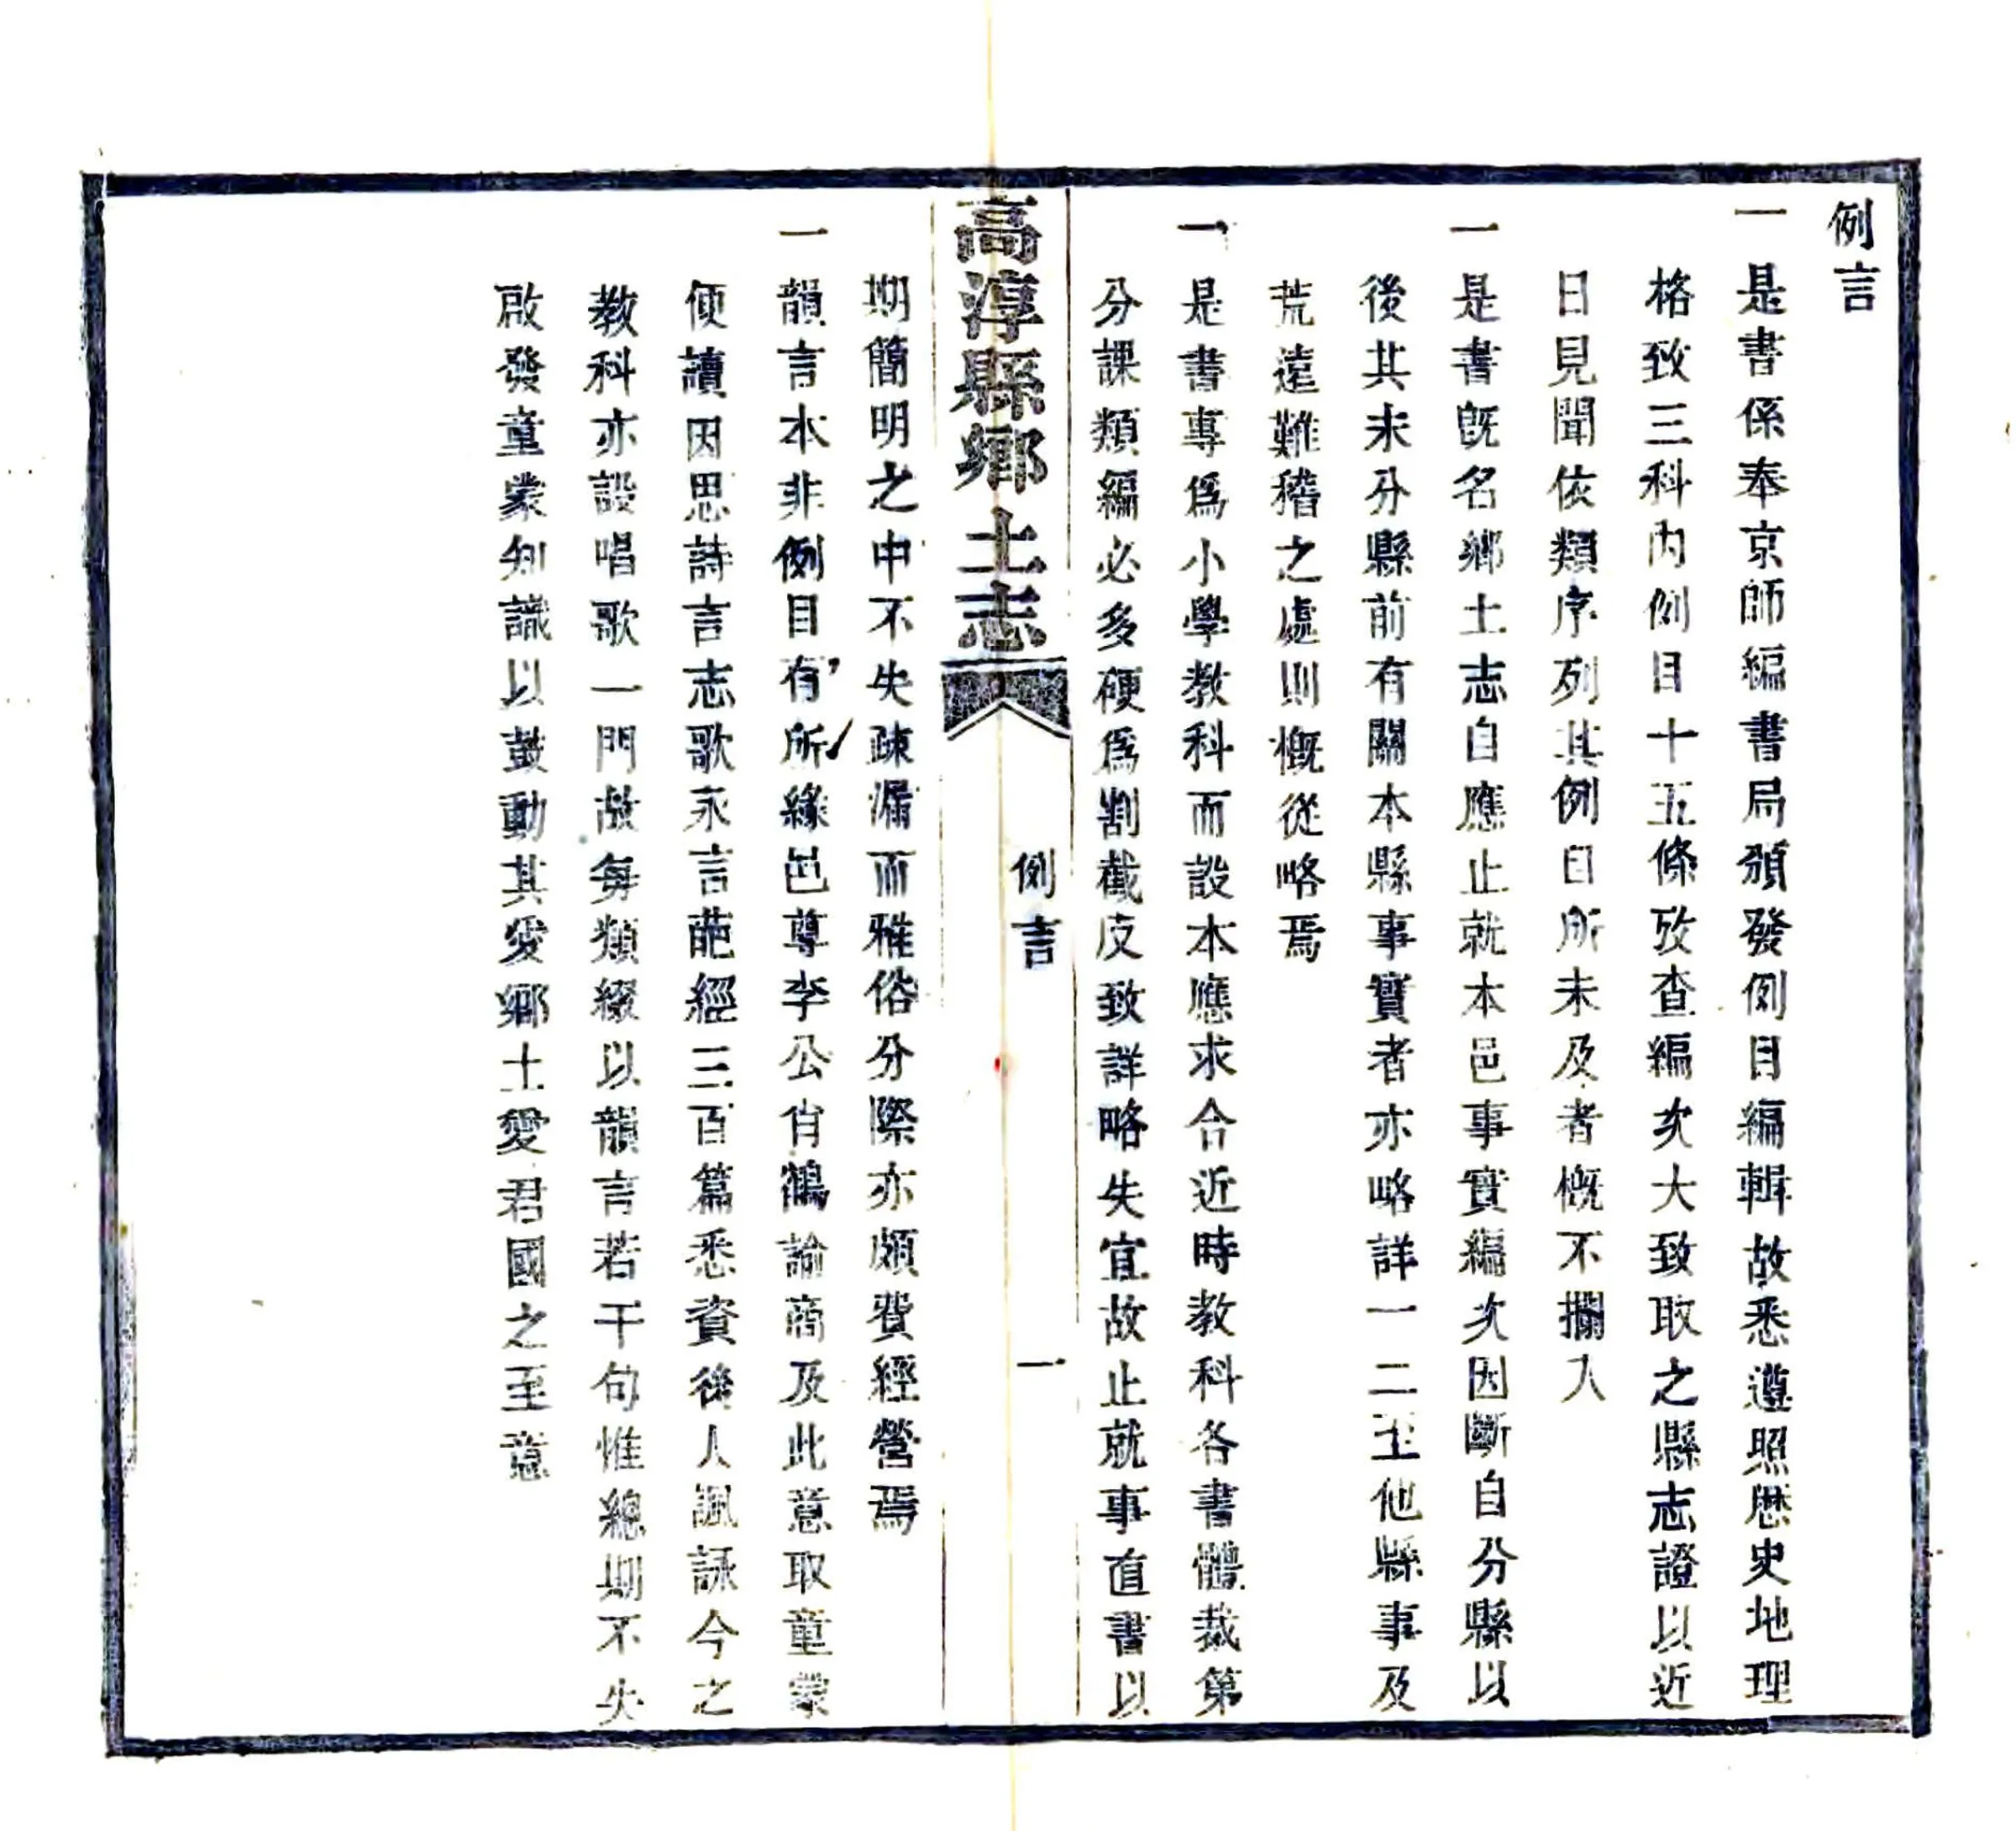 例言
一是書係奉京師編書局頒發例目編輯故悉遵照歷史地理
格致三科內例目十五條攷查編次大致取之縣志證以近
日見聞依類序列其例目所未及者概不攔入
一是書旣名鄉土志自應止就本邑事實編次因斷自分縣以
後其未分縣前有關本縣事實者亦略詳一二至他縣事及
荒遠難稽之處則槪從略焉
一是書專爲小學教科而設本應求合近時教科各書體裁第
分課類編必多硬爲割截反致詳略失宜故止就事直書以
高淳縣鄉土志
例言
一
期簡明之中不失疎漏而雅俗分際亦頗費經營焉
一韻言本非例目有所緣邑尊李公肖鶴諭商及此意取童蒙
便讀因思詩言志歌永言葩經三百篇悉資後人諷詠今之
教科亦設唱歌一門故每類綴以韻言若干句惟總期不失
啟發童蒙知識以鼓動其愛鄉土愛君國之至意